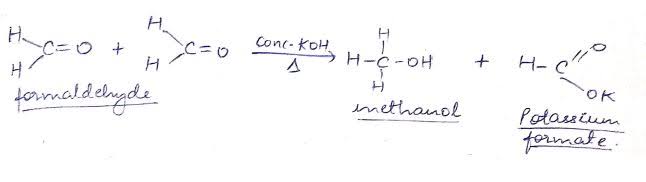 H H
C=O + C=O conc-KOH H-C-OH + H-C O
H H Δ H OK
H
formaldehyde methanol Potassium
formate.